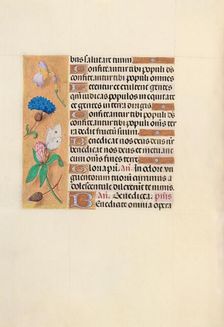 bis salutare tuum.
Confiteantur tibi populi deus
confiteantur tibi populi omnes
Letentur et exultent gentes
quiudicas populos in equitate
et gentes in terra dirigis
Confiteantur tibi populi deus
confiteantur tibi populi omnes ter
ra dedit fructum suum
Benedicat nos deus deus noster
benedicat nos deus et metuant
eum omnes fines terre
Gloria pri. an. In odore un
guentorum tuorum currimus a
dolescentule dilexerunt te nimis.
an. Benedicta. psus
Benedicite omnia opera